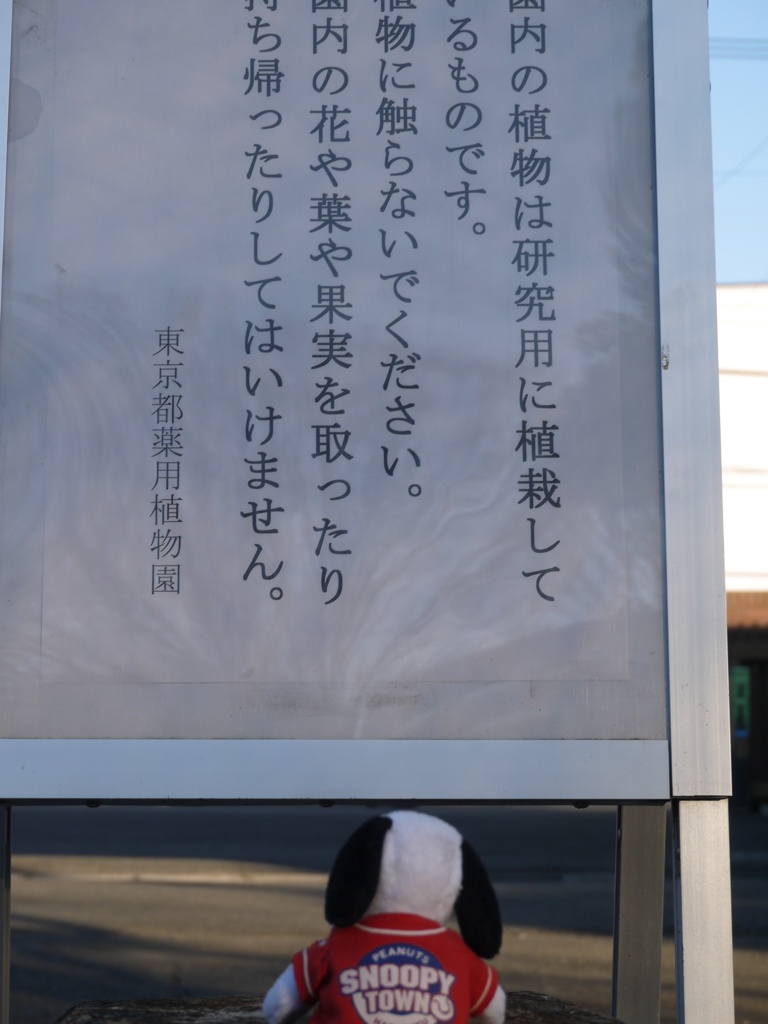 園内の植物は研究用に植栽して
いるものです。
植物に触らないでください。
園内の花や葉や果実を取ったり
持ち帰ったりしてはいけません。
東京都薬用植物園
PEANUTS
SNOOPY
TOWN